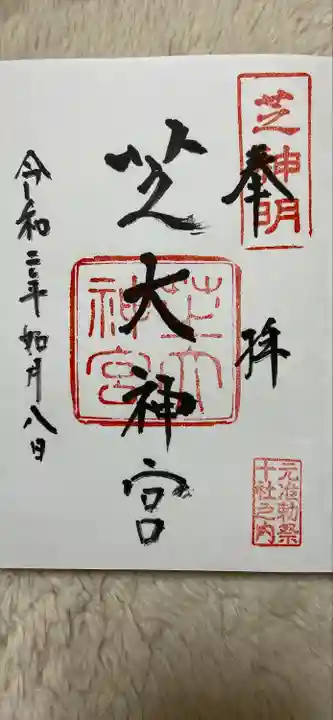 奉拝
芝神明
芝大神宮
芝大神宮
元准勅祭
十社之内
令和三年如月八日